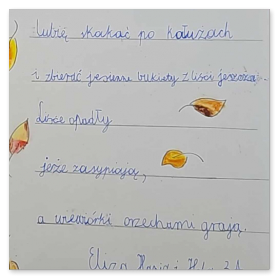 Lubię skakać po kałużach
i zbierać jesienne bukiety z liści jeszcze.
Liście opadły
jeże zasypiają,
a wiewiórki orzechami grają.
Eliza